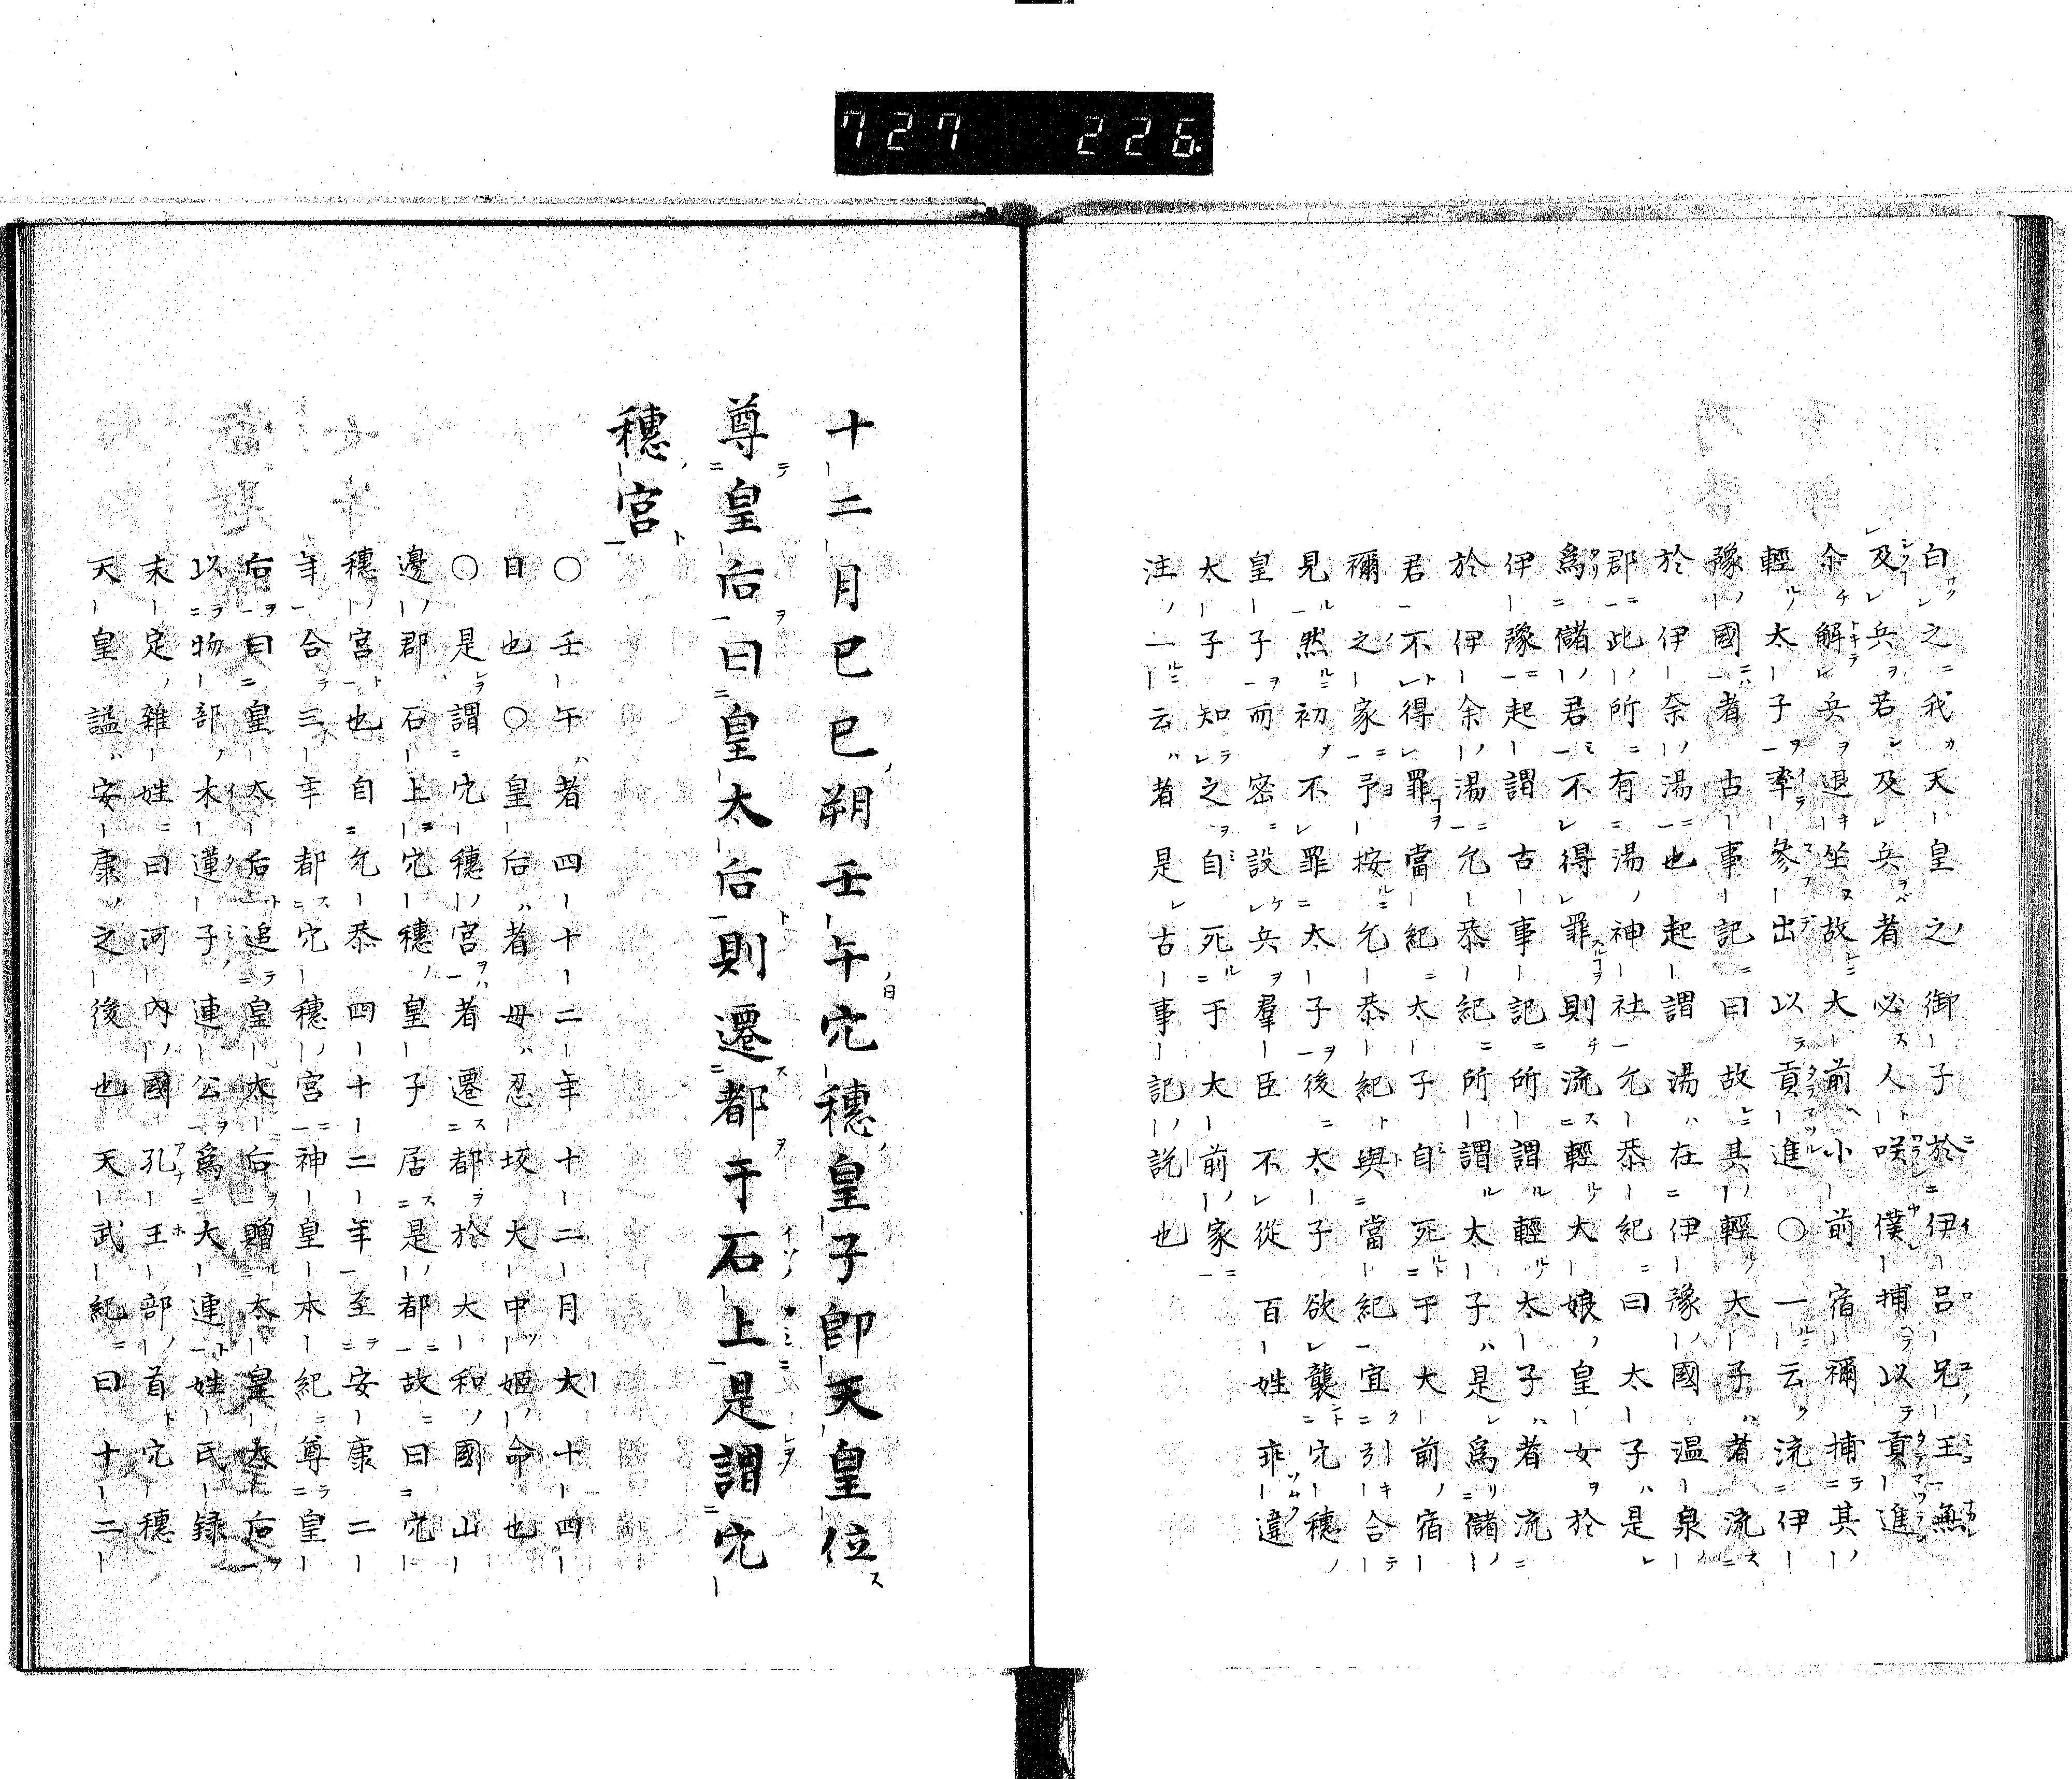 727 226
白之我天皇之御子於伊呂兄王無
及兵若及兵者必人咲僕捕以貢進
尒解兵退坐故大前小前宿禰捕其
輕太子率參出以貢進○一云流伊
豫國者古事記曰故其輕太子者流
於伊奈湯也起謂湯在伊豫國温泉
郡此所有湯神社允恭紀曰太子是
為儲君不得罪則流輕大娘皇女於
伊豫起謂古事記所謂輕太子者流
於伊余湯允恭紀所謂太子是為儲
君不得罪當紀太子自死于大前宿
禰之家予按允恭紀與當紀宜引合
見然初不罪太子後太子欲襲穴穗
皇子而密設兵羣臣不從百姓乖違
太子知之自死于大前家
注一云者是古事記説也
十二月己巳朔壬午穴穗皇子卽天皇位
尊皇后曰皇太后則遷都于石上是謂穴
穗宮
○壬午者四十二年十二月大十四
日也○皇后者母忍坂大中姬命也
○是謂穴穗宮者遷都於大和國山
邊郡石上穴穗皇子居是都故曰穴
穗宮也自允恭四十二年至安康二
年合三年都穴穗宮神皇本紀尊皇
后曰皇太后追皇太后贈太皇太后
以物部木蓮子連公為大連姓氏録
末定雜姓曰河內國孔王部首穴穗
天皇謚安康之後也天武紀曰十二